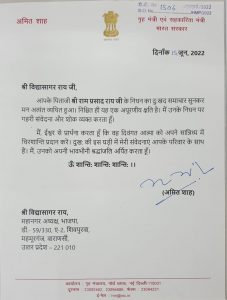 अमित शाह
गृह मंत्री एवं सहकारिता मंत्री
भारत सरकार
1506
15 जून, 2022
श्री विद्यासागर राय जी,
आपके पिताजी श्री राम प्रसाद राय जी के निधन का दुःखद समाचार सुनकर
मन अत्यंत व्यथित हुआ। निश्चित ही यह एक अपूरणीय क्षति है। मैं उनके निधन पर
गहरी संवेदना और शोक व्यक्त करता हूँ।
मैं, ईश्वर से प्रार्थना करता हूँ कि वह दिवंगत आत्मा को अपने सान्निध्य में
चिरशान्ति प्रदान करें। दुःख की इस घड़ी में मेरी संवेदनाएं आपके परिवार के साथ
हैं। मैं, उनको अपनी भावभीनी श्रद्धांजलि अर्पित करता हूँ।
ॐ शान्ति: शान्ति: शान्ति: ।।
(अमित शाह)
श्री विद्यासागर राय,
महानगर अध्यक्ष, भाजपा,
डी- 59/330, ए-2, शिवपुरवा,
महमूरगंज, वाराणसी,
उत्तर प्रदेश – 221 010